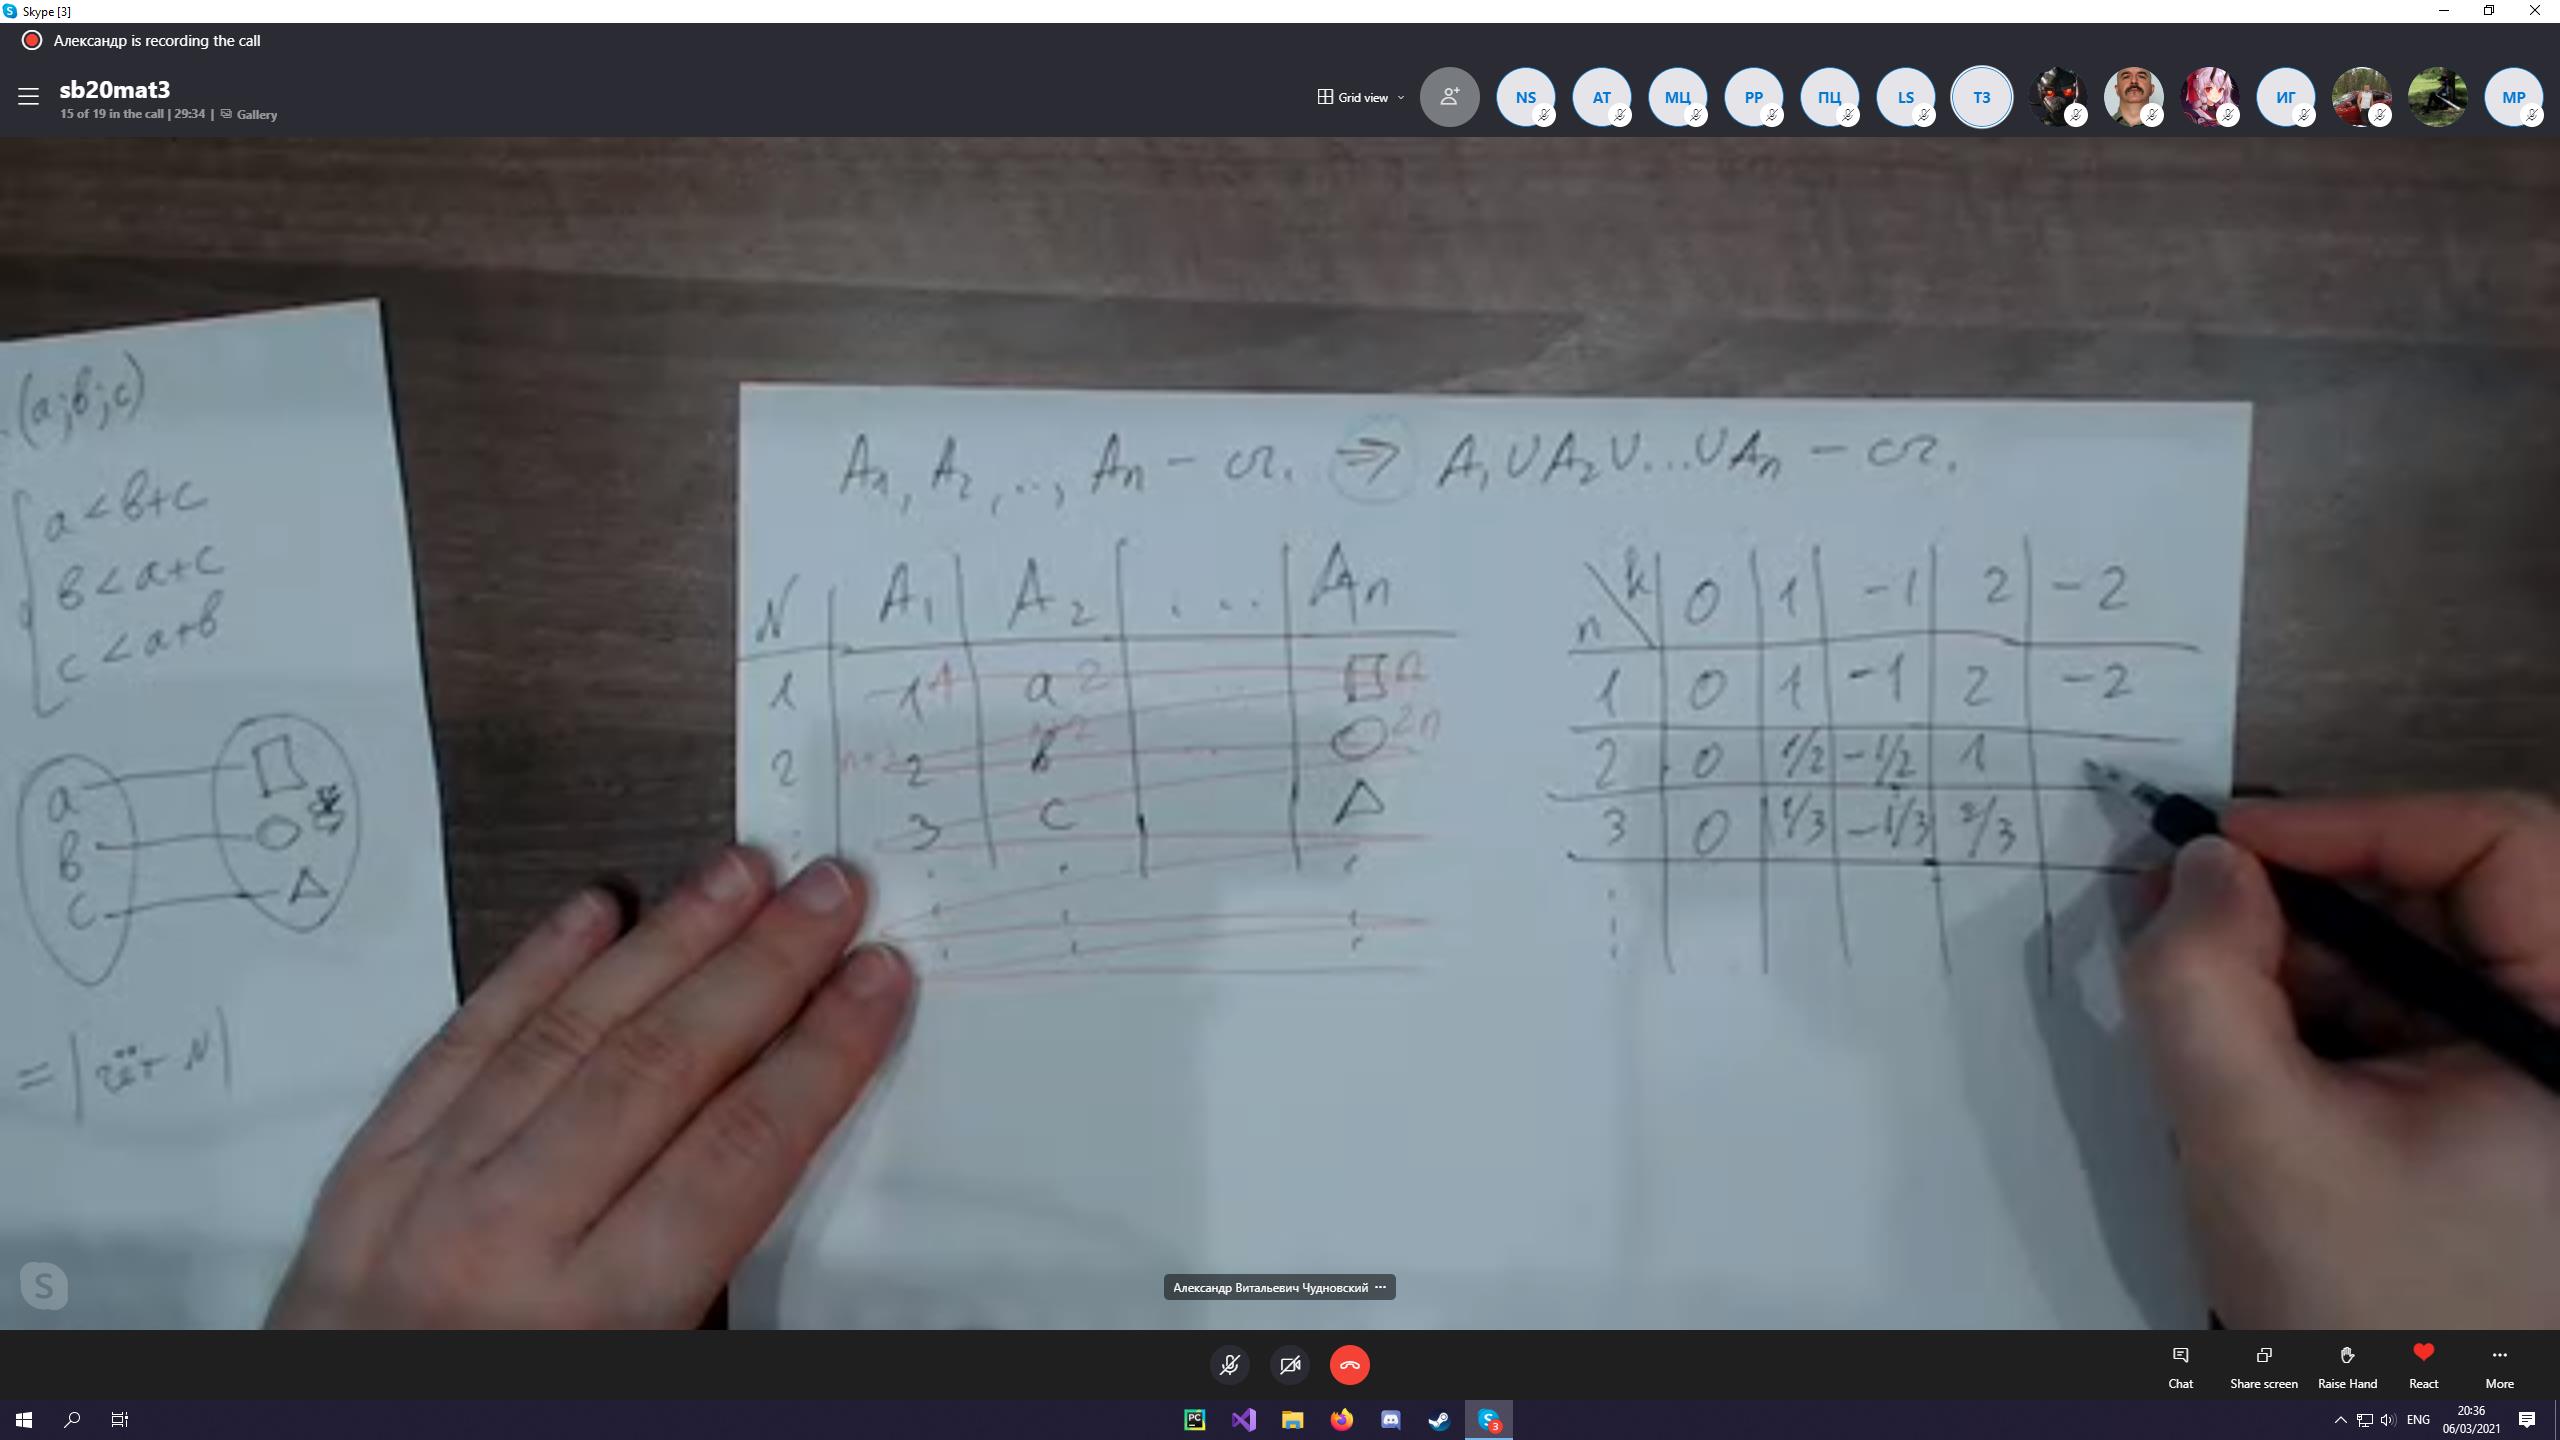 Skype [3]
Александр is recording the call
sb20mat3
15 of 19 in the call | 29:34 | Gallery
Grid view
NS AT МЦ PP ПЦ LS T3 ИГ MP
(a;b;c)
a<b+c
b<a+c
c<a+b
a
b
c
= |чёт N|
A₁, A₂, ..., Aₙ – сч. ⇒ A₁∪A₂∪...∪Aₙ – сч.
N A₁ A₂ ... Aₙ
1 -1 1 a 2 ... □ n
2 2 b ... ○ 2n
3 c △
n\k 0 1 -1 2 -2
1 0 1 -1 2 -2
2 0 1/2 -1/2 1
3 0 1/3 -1/3 2/3
Александр Витальевич Чудновский
Chat Share screen Raise Hand React More
PC
ENG
20:36
06/03/2021